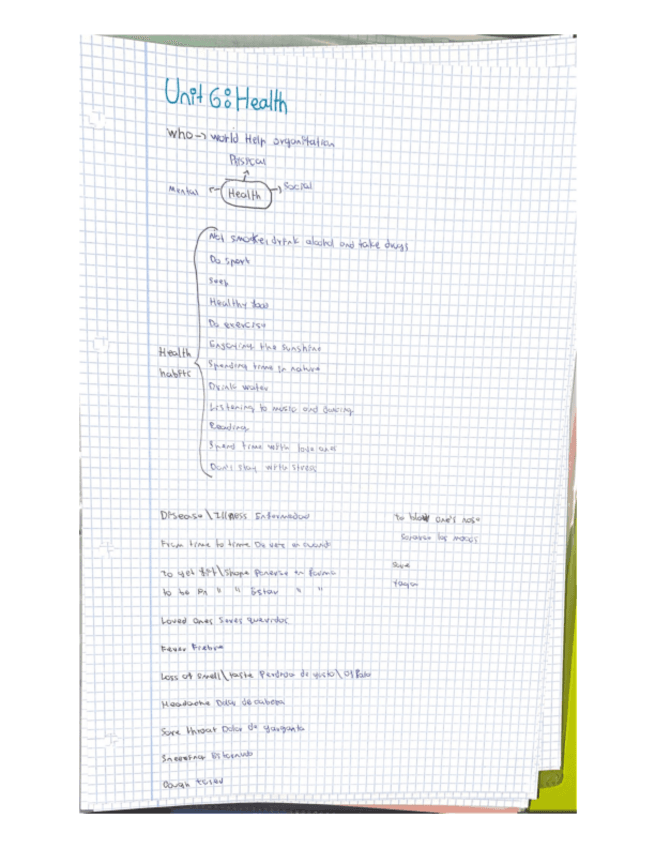 Unit 6: Health
WHO → World Help organitation
Phisical
Mental Health Social
Not smoke, drink alcohol and take drugs
Do sport
Sleep
Healthy food
Do exercise
Enjoying the sunshine
Health habits
Spending time in nature
Drink water
Listening to music and dancing
Reading
Spend time with love ones
Don't stay with stress
Disease \ Illness Enfermedad
to blow one's nose
Sonarse los mocos
From time to time De vez en cuando
To get fit \ shape Ponerse en forma
to be in " " Estar " "
Loved ones Seres queridos
Fever Fiebre
Loss of smell \ taste Perdida de gusto \ olfato
Headache Dolor de cabeza
Sore throat Dolor de garganta
Sneezing Estornudo
Cough toser